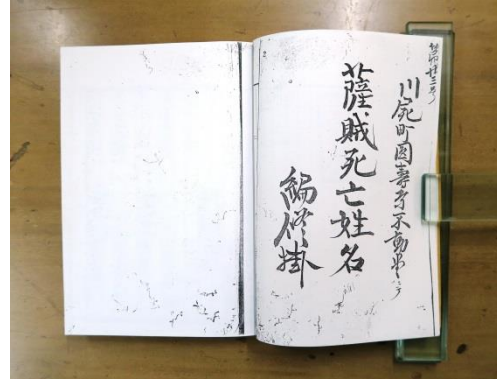 川尻町円寿寺不動堂
薩賊死亡姓名
編修掛